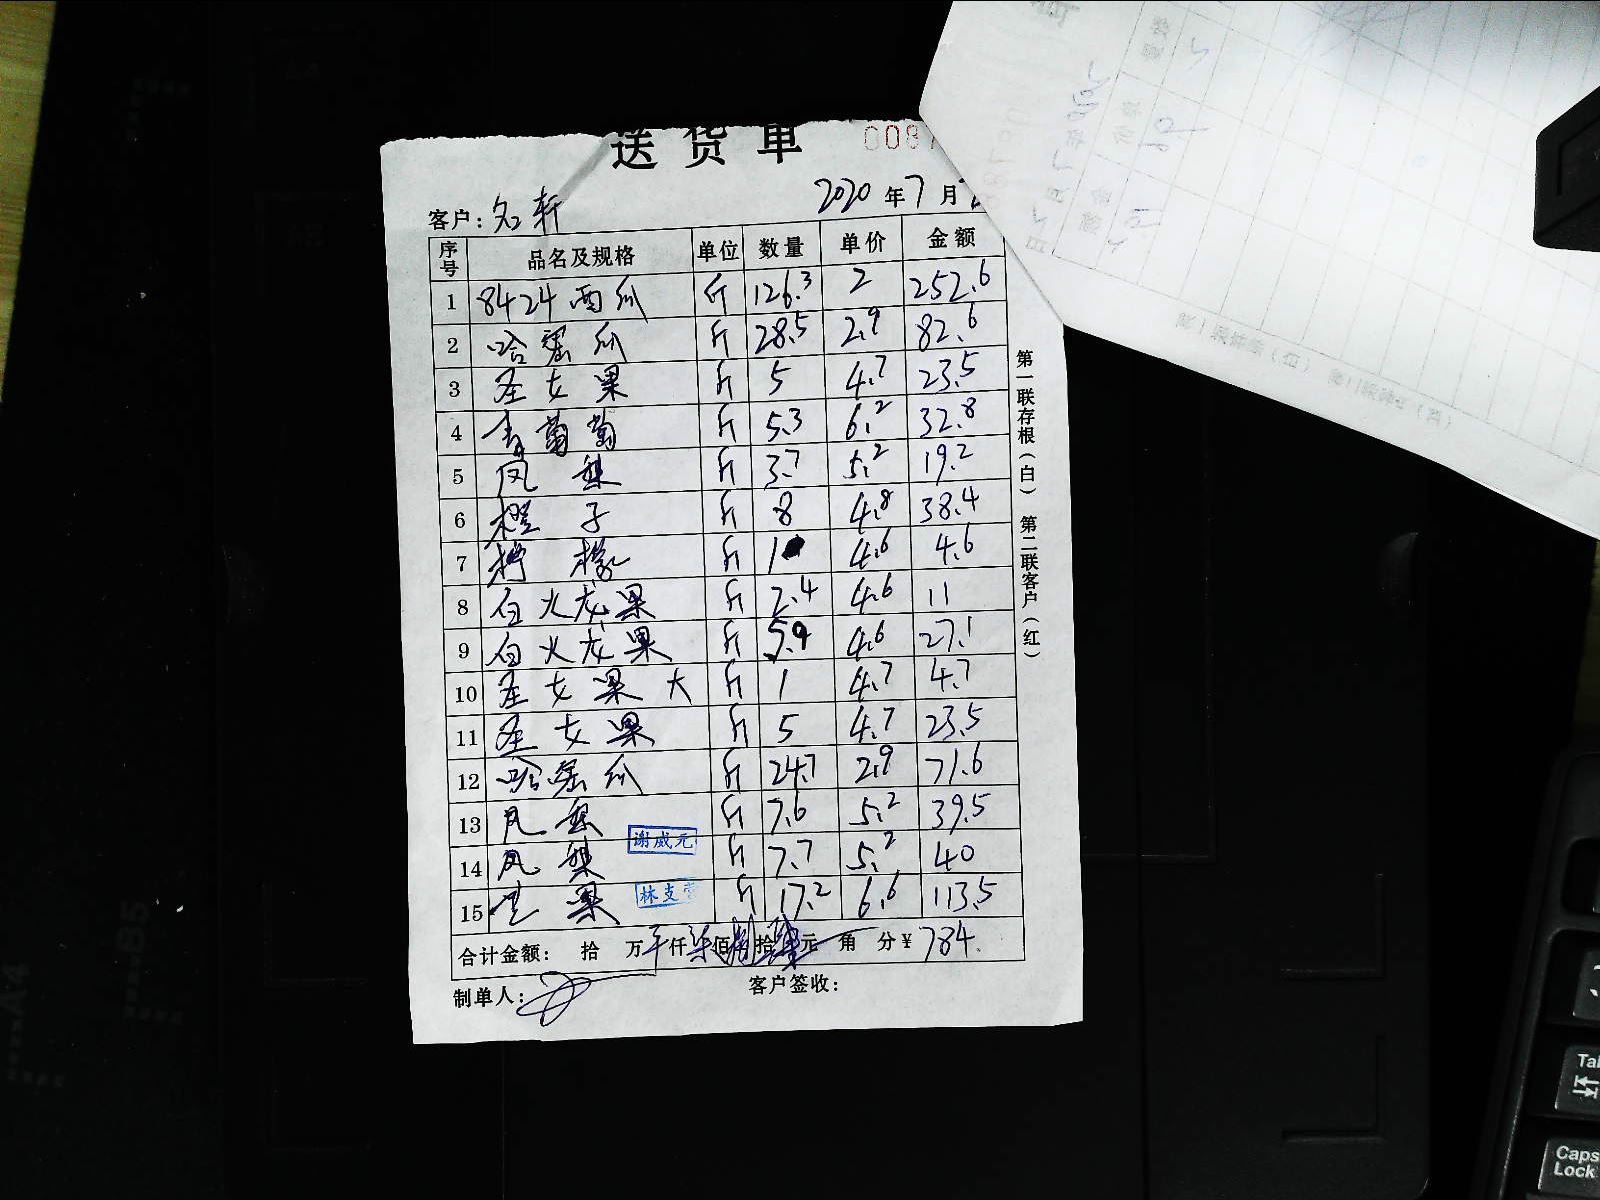 送货单 008
2020年7月
客户：名轩
序号 品名及规格 单位 数量 单价 金额
1 8424西瓜 斤 126.3 2 252.6
2 哈蜜瓜 斤 28.5 2.9 82.6
3 圣女果 斤 5 4.7 23.5
4 青葡萄 斤 5.3 6.2 32.8
5 凤梨 斤 3.7 5.2 19.2
6 橙子 斤 8 4.8 38.4
7 柠檬 斤 1 4.6 4.6
8 白火龙果 斤 2.4 4.6 11
9 白火龙果 斤 5.9 4.6 27.1
10 圣女果大 斤 1 4.7 4.7
11 圣女果 斤 5 4.7 23.5
12 哈蜜瓜 斤 24.7 2.9 71.6
13 凤梨 斤 7.6 5.2 39.5
谢威元
14 凤梨 斤 7.7 5.2 40
林支
15 芒果 斤 17.2 6.6 113.5
合计金额： 拾 万 仟 柒佰捌拾肆元 角 分¥784.
制单人： 客户签收：
第一联存根（白） 第二联客户（红）
A4
B5
Tab
Caps Lock